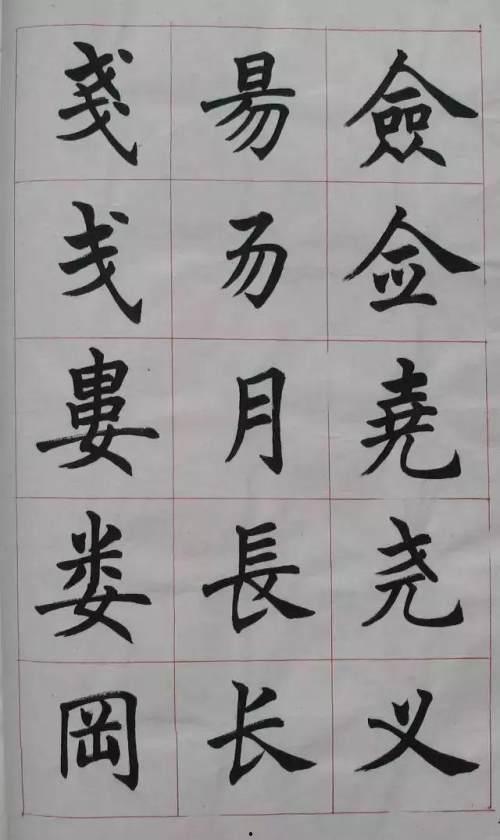 僉佥尭尧义
昜𠃓月長长
戔戋婁娄岡